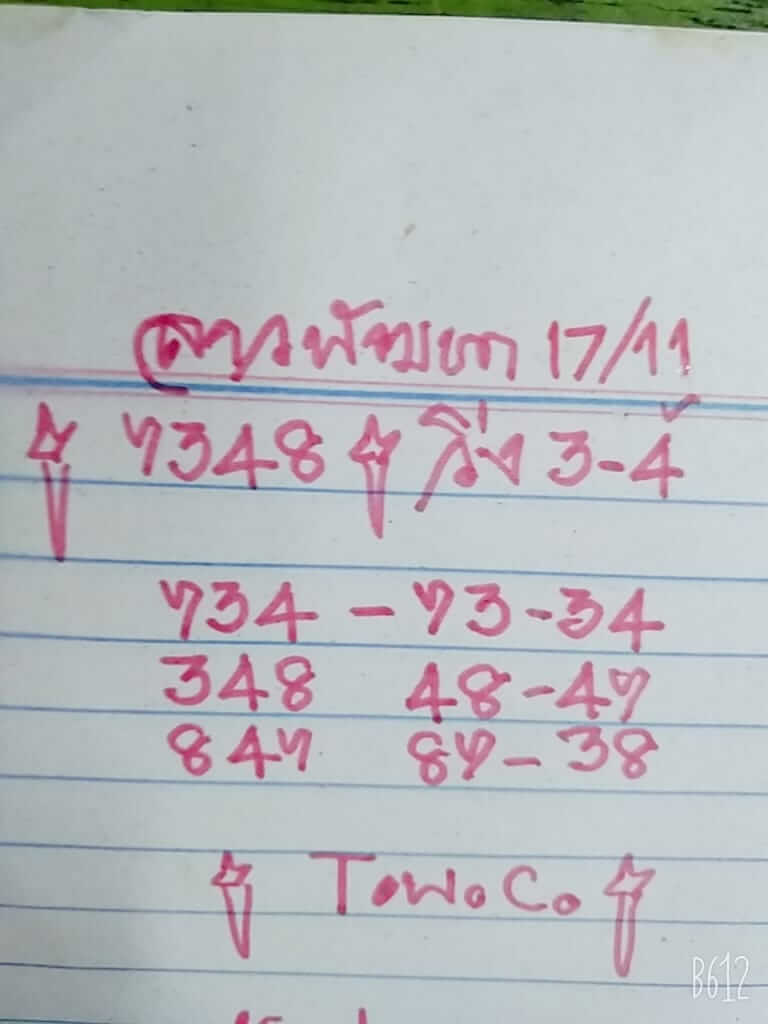 ลาวพัฒนา 17/11
7348 วิ่ง 3-4
734 - 73-34
348 48-47
847 87-38
B612